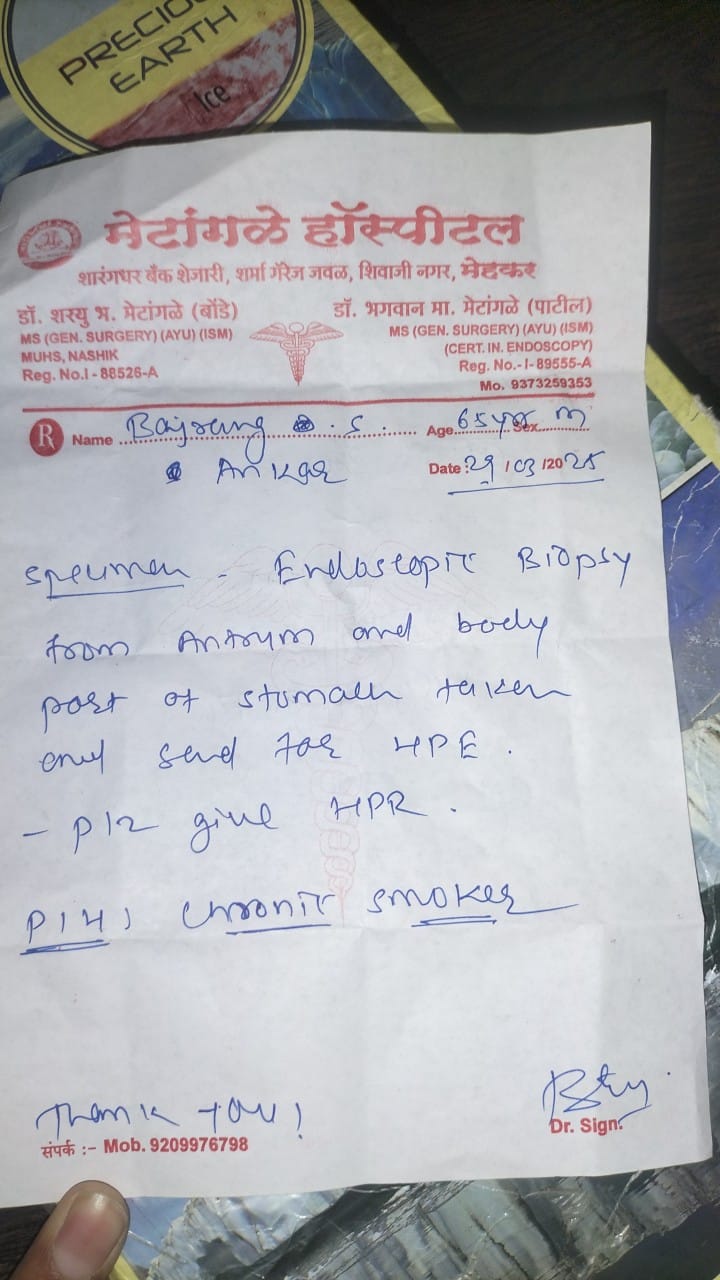 PRECIOUS
EARTH
Ice
मेटांगळे हॉस्पीटल
शारंगधर बँक शेजारी, शर्मा गॅरेज जवळ, शिवाजी नगर, मेहकर
डॉ. शरयु भ. मेटांगळे (बोंडे)
MS (GEN. SURGERY) (AYU) (ISM)
MUHS, NASHIK
Reg. No.I - 88526-A
डॉ. भगवान मा. मेटांगळे (पाटील)
MS (GEN. SURGERY) (AYU) (ISM)
(CERT. IN. ENDOSCOPY)
Reg. No.- I- 89555-A
Mo. 9373259353
R Name Bajrang . S. Age 65 yr Sex m
Ankar Date : 29 / 03 /2025
Specimen - Endoscopic Biopsy
from Antrum and body
part of stomach taken
and send for HPE .
- Plz give HPR .
P/H/ chronic smoker
Thank you!
संपर्क :- Mob. 9209976798
Dr. Sign.